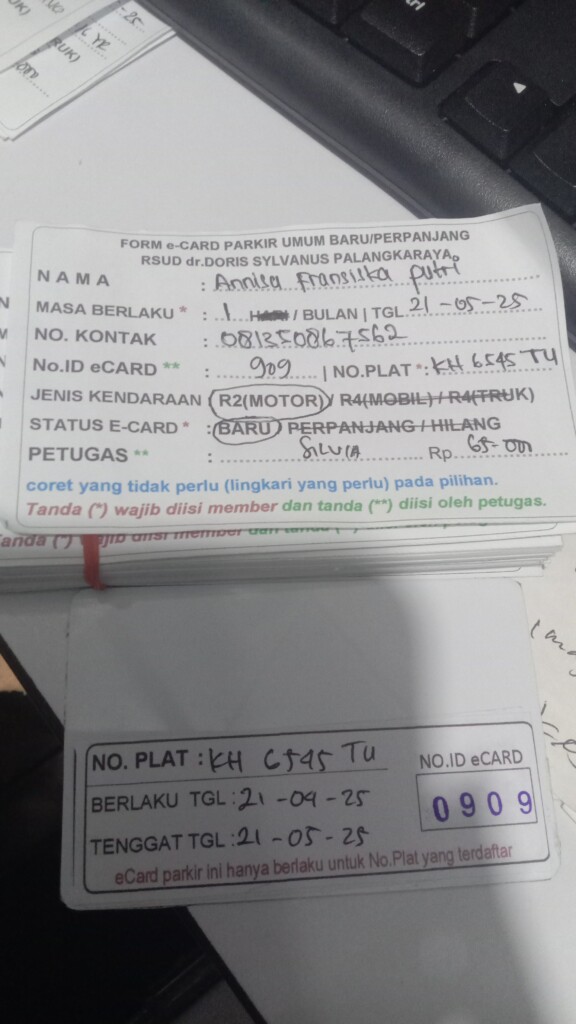 FORM e-CARD PARKIR UMUM BARU/PERPANJANG
RSUD dr.DORIS SYLVANUS PALANGKARAYA
NAMA : Annisa Fransiska putri
MASA BERLAKU * : 1 HARI / BULAN | TGL 21-05-25
NO. KONTAK : 081350867562
No.ID eCARD ** : 909 | NO.PLAT *: KH 6545 TU
JENIS KENDARAAN (R2(MOTOR) / R4(MOBIL) / R4(TRUK)
STATUS E-CARD * : BARU PERPANJANG / HILANG
PETUGAS ** : SILVIA Rp 65-000
coret yang tidak perlu (lingkari yang perlu) pada pilihan.
Tanda (*) wajib diisi member dan tanda (**) diisi oleh petugas.
NO. PLAT : KH 6545 TU
NO.ID eCARD
BERLAKU TGL : 21-04-25
0909
TENGGAT TGL : 21-05-25
eCard parkir ini hanya berlaku untuk No.Plat yang terdaftar